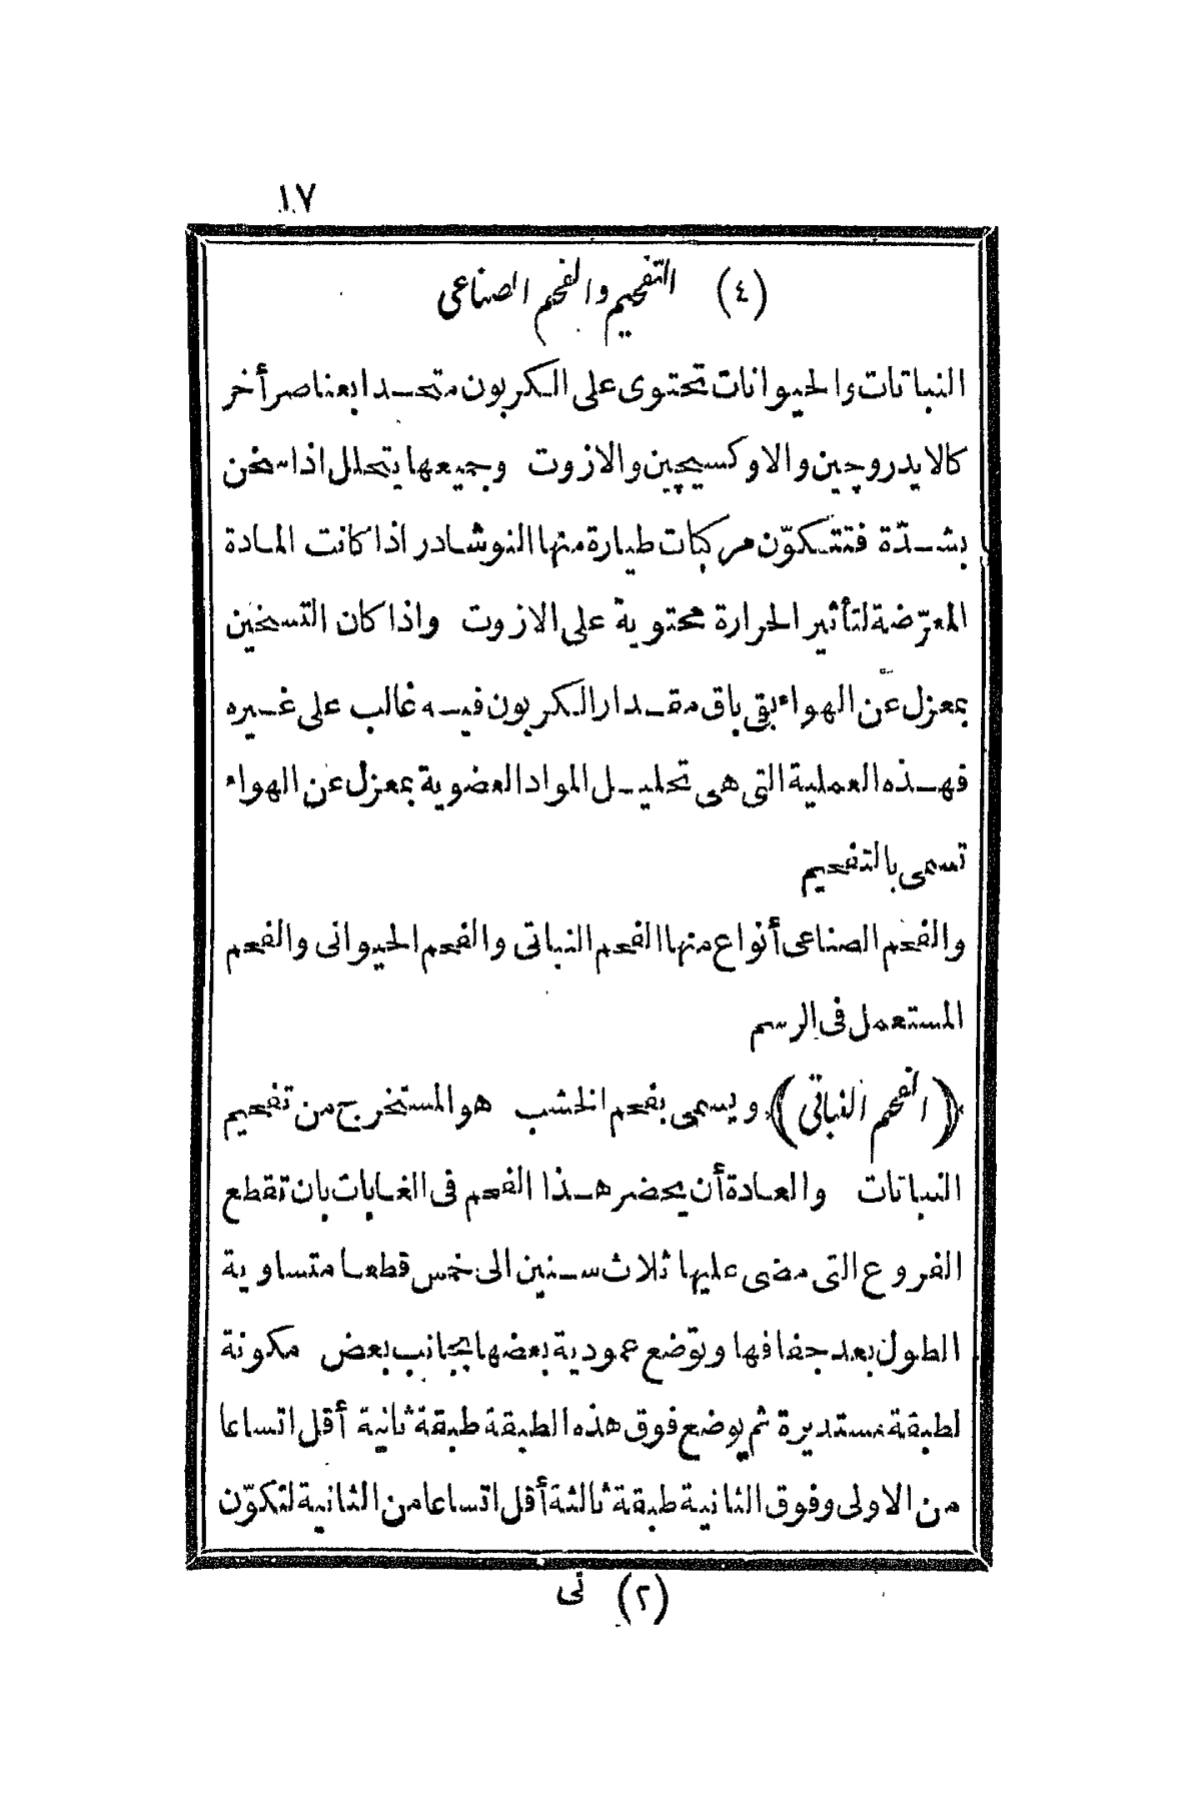 ١٧
(٤) التفحيم والفحم الصناعى
النباتات والحيوانات تحتوى على الكربون متحدا بعناصر أخر
كالايدروچين والاوكسيچين والازوت وجميعها يتحلل اذا سخن
بشدّة فتتكوّن مركبات طيارة منها النوشادر اذا كانت المادة
المعرّضة لتأثير الحرارة محتوية على الازوت واذا كان التسخين
بمعزل عن الهواء بقى باق مقدار الكربون فيه غالب على غيره
فهذه العملية التى هى تحليل المواد العضوية بمعزل عن الهواء
تسمى بالتفحيم
والفحم الصناعى أنواع منها الفحم النباتى والفحم الحيوانى والفحم
المستعمل فى الرسم
﴿الفحم النباتى﴾ ويسمى بفحم الخشب هو المستخرج من تفحيم
النباتات والعادة أن يحضر هذا الفحم فى الغابات بان تقطع
الفروع التى مضى عليها ثلاث سنين الى خمس قطعا متساوية
الطول بعد جفافها وتوضع عمودية بعضها بجانب بعض مكونة
لطبقة مستديرة ثم يوضع فوق هذه الطبقة طبقة ثانية أقل اتساعا
من الاولى وفوق الثانية طبقة ثالثة أقل اتساعا من الثانية لتكوّن
(٢) نى